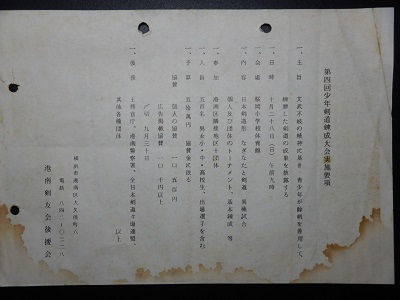 第四回少年剣道錬成大会実施要項
一、主旨 文武不岐の精神に基き 青少年が余暇を善用して、
錬磨した剣道の成果を披露する
一、日時 十月二十八日(日)午前九時
一、会場 桜岡小学校体育館
一、内容 日本剣道形 なぎなたと剣道 異種試合
個人及び団体のトーナメント、基本錬成 等
一、参加 港南区隣接地区 十団体
一、人員 五百名 男女小・中・高校生、出場選手を含む
一、予算 五拾萬円 協賛金に依る
協賛 個人の協賛 一口 五百円
広告掲載協賛 一口 千円以上
〆切 九月三十日
一、後援
其他各種団体 以上
横浜市港南区大久保町
電話
港南剣友会後援会